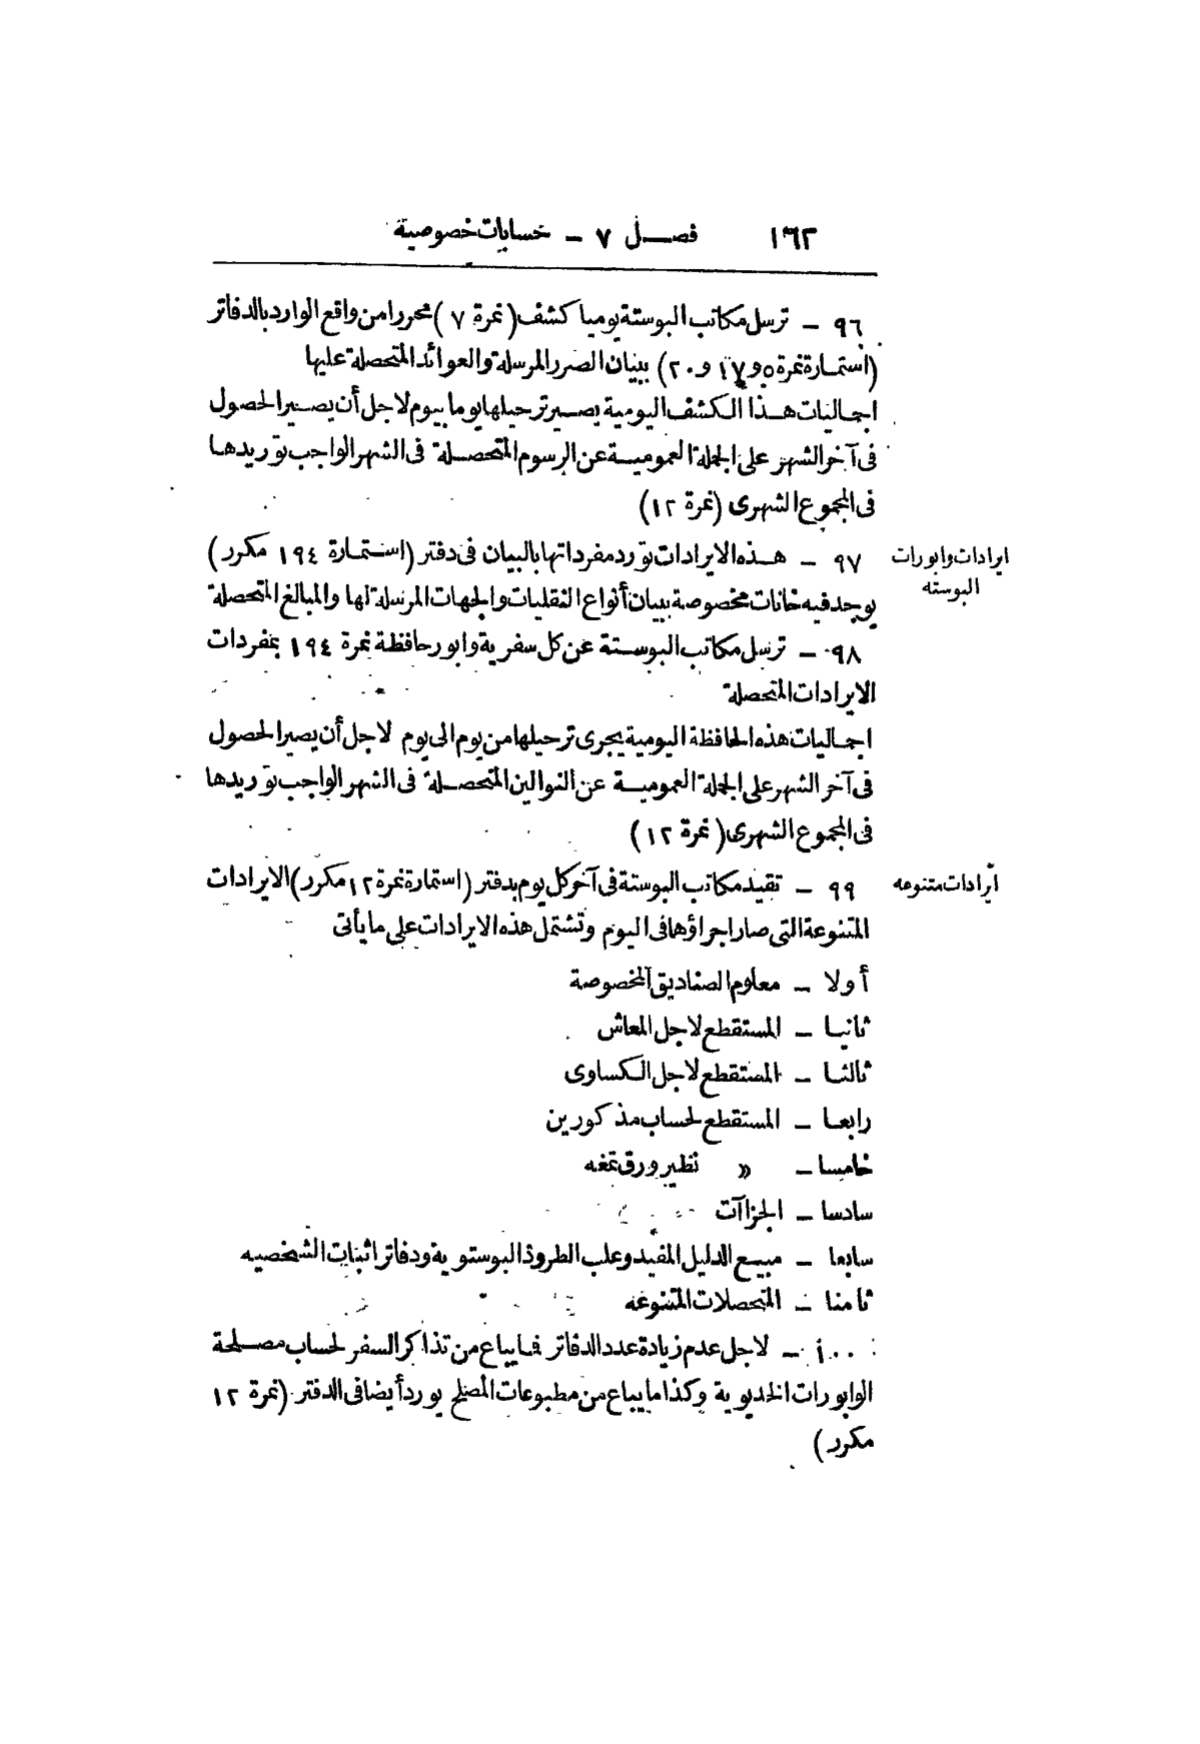 ١٦٢ فصل ٧ — حسابات خصوصية
٩٦ — ترسل مكاتب البوستة يوميا كشف (نمرة ٧) محررا من واقع الوارد بالدفاتر
(استمارة نمرة ٥ و ١٧ و ٢٠) ببيان الصرر المرسلة والعوائد المتحصلة عليها
اجماليات هذا الكشف اليومية يصير ترحيلها يوما بيوم لاجل أن يصير الحصول
فى آخر الشهر على الجملة العمومية عن الرسوم المتحصلة فى الشهر الواجب توريدها
فى المجموع الشهرى (نمرة ١٢)
ايرادات وابورات
البوسته
٩٧ — هذه الايرادات تورد مفرداتها بالبيان فى دفتر (استمارة ١٩٤ مكرر)
يوجد فيه خانات مخصوصة ببيان أنواع النقليات والجهات المرسلة لها والمبالغ المتحصلة
٩٨ — ترسل مكاتب البوستة عن كل سفرية وابور حافظة نمرة ١٩٤ بمفردات
الايرادات المتحصلة
اجماليات هذه الحافظة اليومية يجرى ترحيلها من يوم الى يوم لاجل أن يصير الحصول
فى آخر الشهر على الجملة العمومية عن النوالين المتحصلة فى الشهر الواجب توريدها
فى المجموع الشهرى (نمرة ١٢)
ايرادات متنوعه
٩٩ — تقيد مكاتب البوستة فى آخر كل يوم بدفتر (استمارة نمرة ١٢ مكرر) الايرادات
المتنوعة التى صار اجراؤها فى اليوم وتشتمل هذه الايرادات على ما يأتى
أولا — معلوم الصناديق المخصوصة
ثانيا — المستقطع لاجل المعاش
ثالثا — المستقطع لاجل الكساوى
رابعا — المستقطع لحساب مذكورين
خامسا — » نظير ورق تمغه
سادسا — الجزاآت
سابعا — مبيع الدليل المفيد وعلب الطرود البوستوية ودفاتر اثبات الشخصيه
ثامنا — المتحصلات المتنوعه
١٠٠ — لاجل عدم زيادة عدد الدفاتر فما يباع من تذاكر السفر لحساب مصلحة
الوابورات الخديوية وكذا ما يباع من مطبوعات المصلح يورد أيضا فى الدفتر (نمرة ١٢
مكرر)